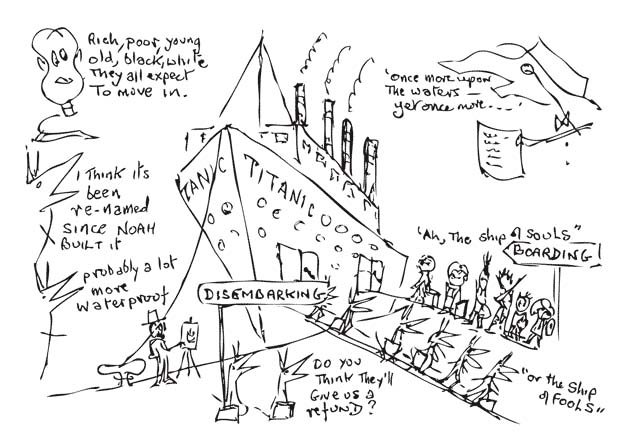 Rich, poor, young
old, black, white
They all expect
To move in.
'Once more upon
The waters —
yet once more . . . .
I Think it's
been
re-named
SINCE NOAH
BUILT it
probably a lot
more
waterproof
TANIC
TITANIC
'Ah, The Ship of SOULS"
BOARDING!
DISEMBARKING
DO YOU
THINK They'll
GIVE US a
refUND?
"or the Ship
of FOOLS"